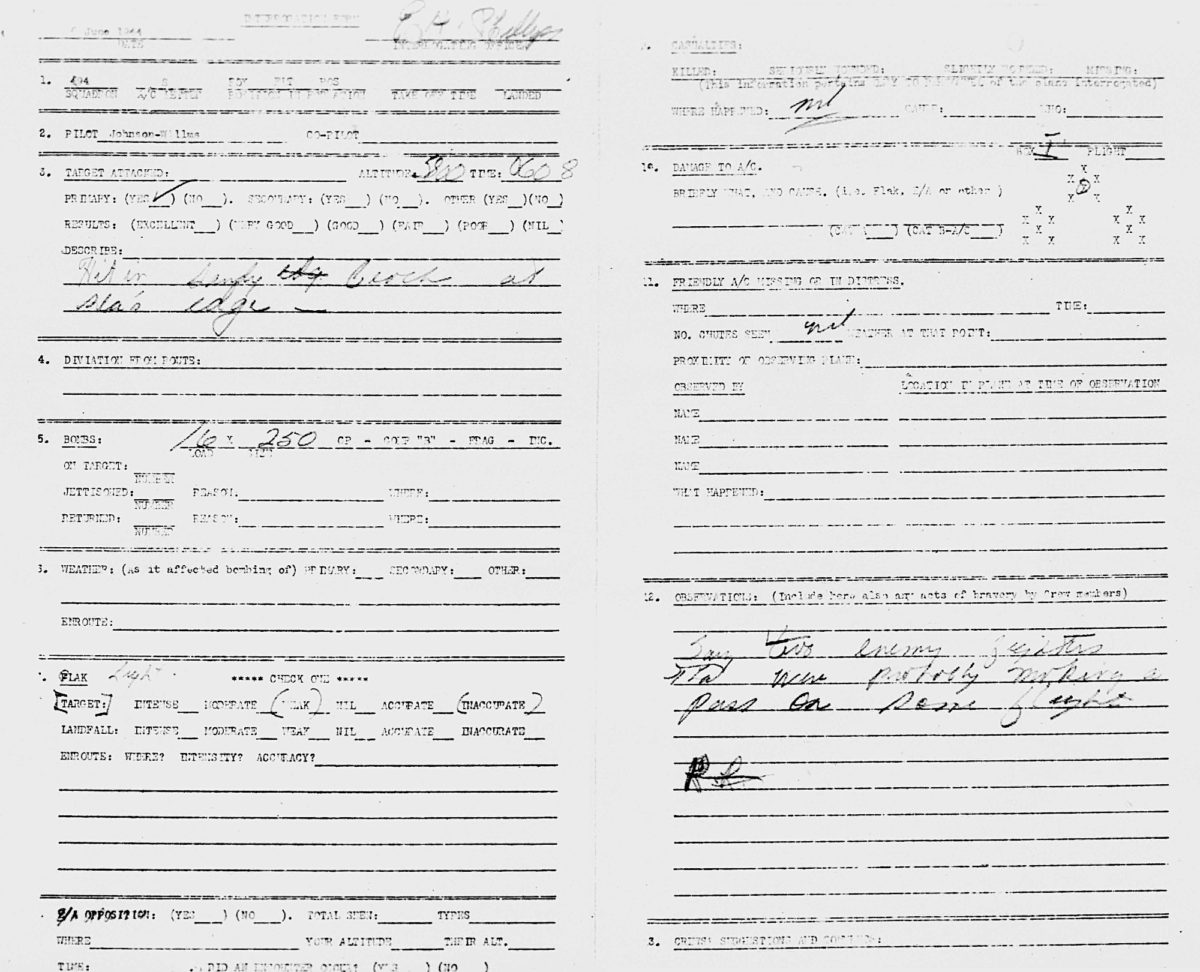 INTERROGATION FORM
6 June 1944
DATE
INTERROGATING OFFICER
1.
SQUADRON A/C LETTER POSITION IN FORMATION TAKE OFF TIME LANDED
2. PILOT Johnson-Willms CO-PILOT
3. TARGET ATTACKED: ALTITUDE TIME: 0608
PRIMARY: (YES ) (NO ). SECONDARY: (YES ) (NO ). OTHER (YES )(NO )
RESULTS: (EXCELLENT ) (VERY GOOD ) (GOOD ) (FAIR ) (POOR ) (NIL )
DESCRIBE:
Hit in sandy beach at
sea's edge —
4. DIVIATION FROM ROUTE:
5. BOMBS: 16 X 250 GP - COMP "B" - FRAG - INC.
LOAD SIZE
ON TARGET:
NUMBER
JETTISONED: REASON. WHERE:
NUMBER
RETURNED: REASON: WHERE:
NUMBER
WEATHER: (As it affected bombing of) PRIMARY: SECONDARY: OTHER:
ENROUTE:
FLAK Light ***** CHECK ONE *****
TARGET: INTENSE MODERATE (WEAK ) NIL ACCURATE (INACCURATE )
LANDFALL: INTENSE MODERATE WEAK NIL ACCURATE INACCURATE
ENROUTE: WHERE? INTENSITY? ACCURACY?
E/A OPPOSITION: (YES ) (NO ). TOTAL SEEN: TYPES
WHERE YOUR ALTITUDE THEIR ALT.
TIME: DID AN ENCOUNTER OCCUR? (YES ) (NO )
CASUALTIES:
KILLED: SERIOUSLY WOUNDED: SLIGHTLY WOUNDED: MISSING:
(This information pertains ONLY TO MEMBERS of the plane Interrogated)
WHERE HAPPENED: nil CAUSE: WHO:
BOX I FLIGHT
10. DAMAGE TO A/C.
BRIEFLY WHAT, AND CAUSE. (i.e. Flak, E/A or other )
(CAT A ) (CAT B-A/C )
X
X X
X X
X X
X X X X
X X
X X X X
11. FRIENDLY A/C MISSING OR IN DISTRESS.
WHERE TIME:
NO. CHUTES SEEN nil WEATHER AT THAT POINT:
PROXIMITY OF OBSERVING PLANE:
OBSERVED BY LOCATION IN PLANE AT TIME OF OBSERVATION
NAME
NAME
NAME
WHAT HAPPENED:
12. OBSERVATIONS: (Include here also any acts of bravery by Crew members)
Saw two enemy fighters
were probably making a
pass on some flight
3. CREWS' SUGGESTIONS AND COMMENTS: